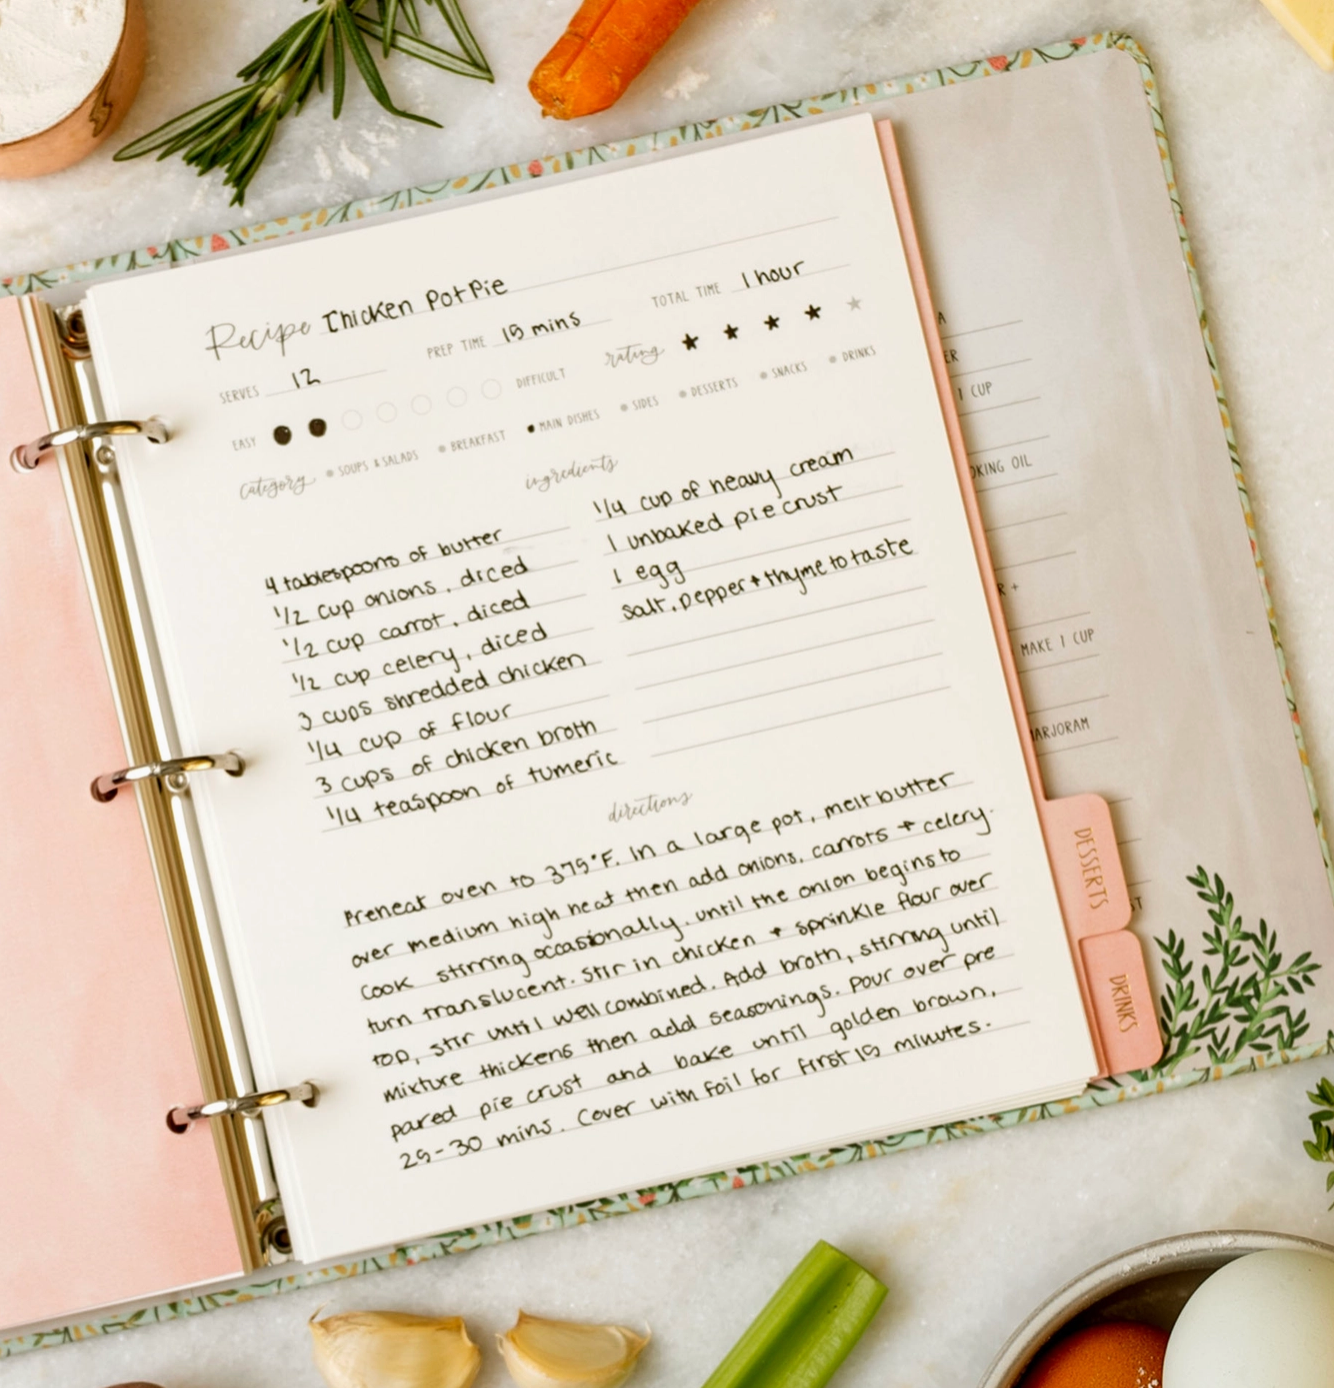 Recipe Chicken Pot Pie
SERVES 12 PREP TIME 15 mins TOTAL TIME 1 hour
EASY DIFFICULT rating
category SOUPS & SALADS BREAKFAST MAIN DISHES SIDES DESSERTS SNACKS DRINKS
ingredients
4 tablespoons of butter
1/2 cup onions, diced
1/2 cup carrot, diced
1/2 cup celery, diced
3 cups shredded chicken
1/4 cup of flour
3 cups of chicken broth
1/4 teaspoon of tumeric
1/4 cup of heavy cream
1 unbaked pie crust
1 egg
salt, pepper + thyme to taste
directions
Preheat oven to 375°F. In a large pot, melt butter
over medium high heat then add onions, carrots + celery.
Cook stirring occasionally, until the onion begins to
turn translucent. Stir in chicken + sprinkle flour over
top, stir until well combined. Add broth, stirring until
mixture thickens then add seasonings. Pour over pre
pared pie crust and bake until golden brown,
25-30 mins. Cover with foil for first 15 minutes.
1 CUP
OKING OIL
MAKE 1 CUP
ARJORAM
DESSERTS
DRINKS